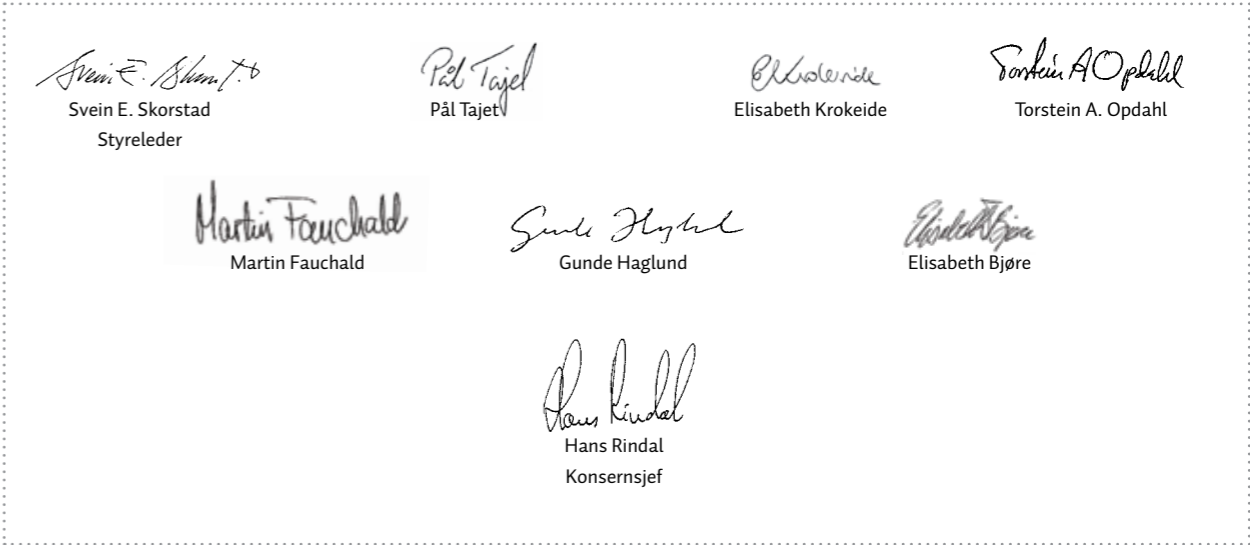 Svein E. Skorstad
Pål Tajet
Elisabeth Krokeide
Torstein A. Opdahl
Styreleder
Martin Fauchald
Gunde Haglund
Elisabeth Bjøre
Hans Rindal
Konsernsjef